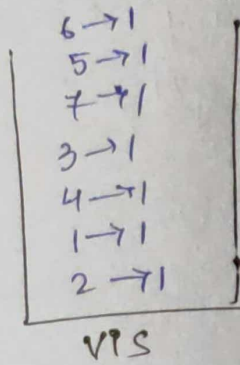 6 → 1
5 → 1
7 → 1
3 → 1
4 → 1
1 → 1
2 → 1
VIS